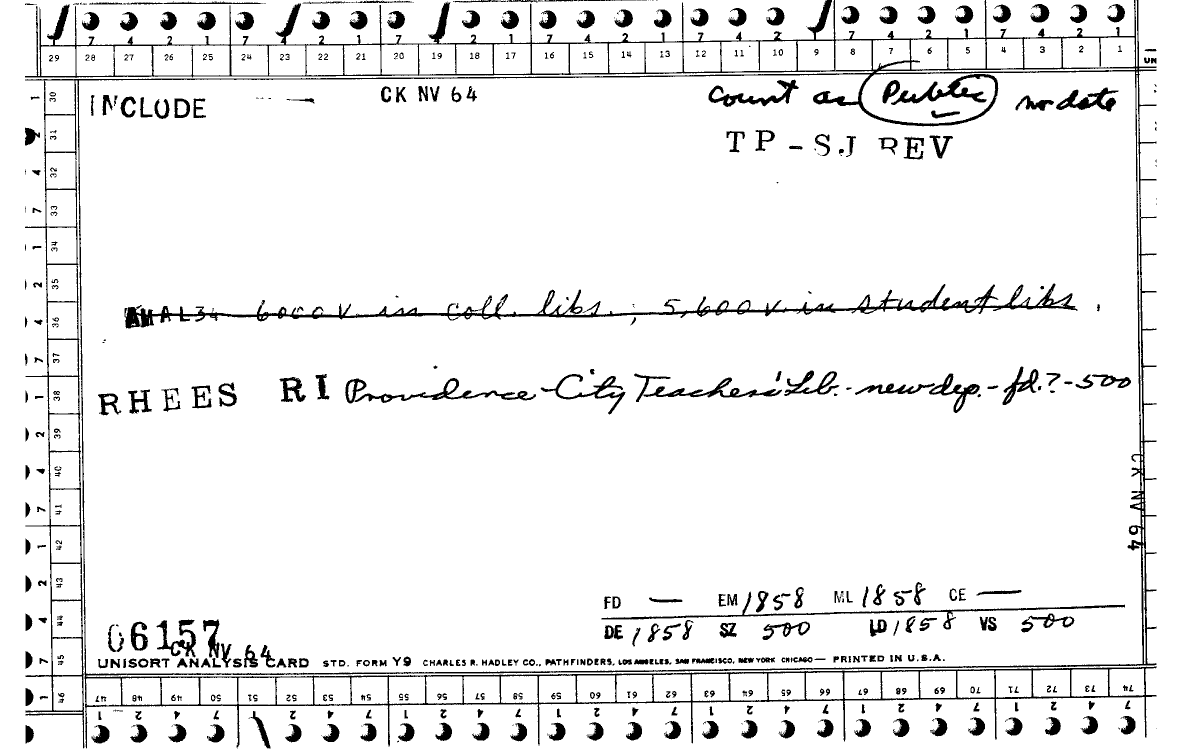 7 4 2 1 7 4 2 1 7 4 2 1 7 4 2 1 7 4 2 7 4 2 1 7 4 2 1
29 28 27 26 25 24 23 22 21 20 19 18 17 16 15 14 13 12 11 10 9 8 7 6 5 4 3 2 1
UN
INCLUDE — CK NV 64 count as Public no date
TP - SJ REV
AMAL34 6000 V. in coll. libs.; 5,600 v. in student libs.
RHEES RI Providence - City Teachers' Lib. - new dep. - fd.? - 500
CK NV 64
FD — EM 1858 ML 1858 CE —
DE 1858 SZ 500 LD 1858 VS 500
06157
CK NV 64
UNISORT ANALYSIS CARD STD. FORM Y9 CHARLES R. HADLEY CO., PATHFINDERS, LOS ANGELES, SAN FRANCISCO, NEW YORK CHICAGO — PRINTED IN U.S.A.
30 31 32 33 34 35 36 37 38 39 40 41 42 43 44 45 46
47 48 49 50 51 52 53 54 55 56 57 58 59 60 61 62 63 64 65 66 67 68 69 70 71 72 73 74
1 2 4 7 2 4 7 1 2 4 7 1 2 4 7 1 2 4 7 1 2 4 7 1 2 4 7